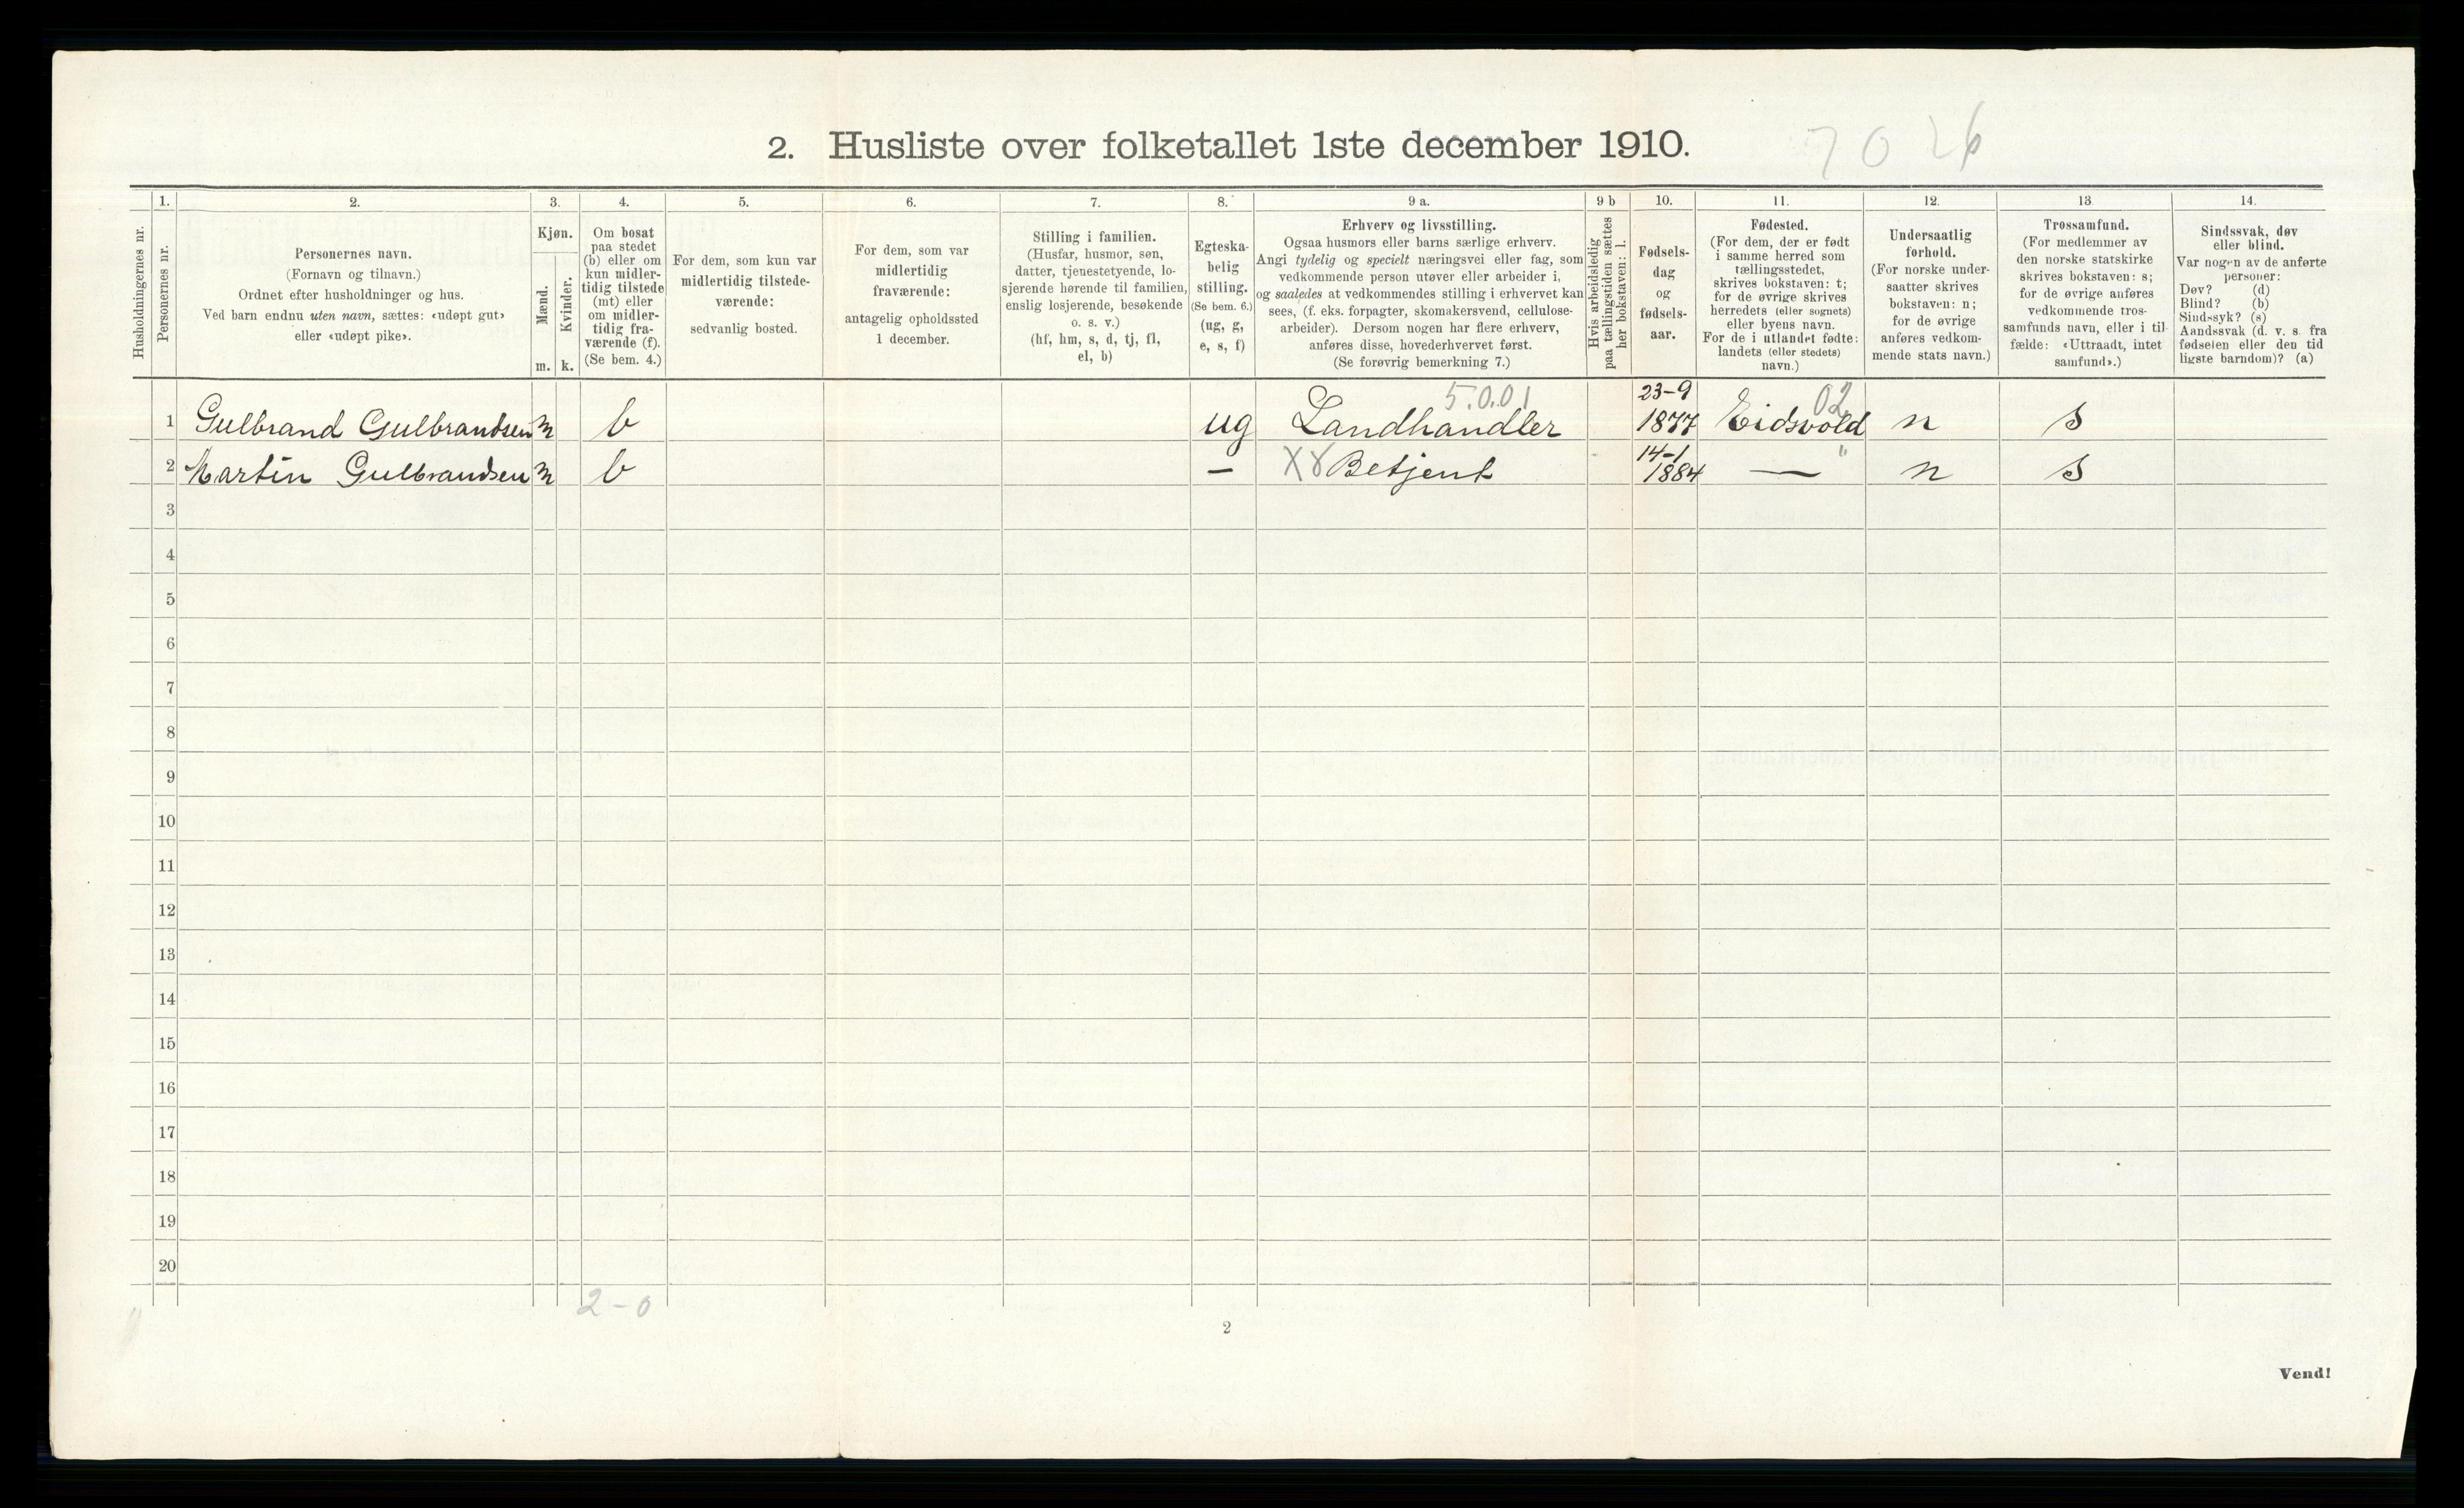 2. Husliste over folketallet 1ste december 1910. 7026
Husholdningernes nr.
1.
Personernes nr.
2.
Personernes navn.
(Fornavn og tilnavn.)
Ordnet efter husholdninger og hus.
Ved barn endnu uten navn, sættes: «udøpt gut»
eller «udøpt pike».
3.
Kjøn.
Mænd.
Kvinder.
m. k.
4.
Om bosat
paa stedet
(b) eller om
kun midler-
tidig tilstede
(mt) eller
om midler-
tidig fra-
værende (f).
(Se bem. 4.)
5.
For dem, som kun var
midlertidig tilstede-
værende:
sedvanlig bosted.
6.
For dem, som var
midlertidig
fraværende:
antagelig opholdssted
1 december.
7.
Stilling i familien.
(Husfar, husmor, søn,
datter, tjenestetyende, lo-
sjerende hørende til familien,
enslig losjerende, besøkende
o. s. v.)
(hf, hm, s, d, tj, fl,
el, b)
8.
Egteska-
belig
stilling.
(Se bem. 6.)
(ug, g,
e, s, f)
9 a.
Erhverv og livsstilling.
Ogsaa husmors eller barns særlige erhverv.
Angi tydelig og specielt næringsvei eller fag, som
vedkommende person utøver eller arbeider i,
og saaledes at vedkommendes stilling i erhvervet kan
sees, (f. eks. forpagter, skomakersvend, cellulose-
arbeider). Dersom nogen har flere erhverv,
anføres disse, hovederhvervet først.
(Se forøvrig bemerkning 7.)
9 b
Hvis arbeidsledig
paa tællingstiden sættes
her bokstaven: l.
10.
Fødsels-
dag
og
fødsels-
aar.
11.
Fødested.
(For dem, der er født
i samme herred som
tællingsstedet,
skrives bokstaven: t;
for de øvrige skrives
herredets (eller sognets)
eller byens navn.
For de i utlandet fødte:
landets (eller stedets)
navn.)
12.
Undersaatlig
forhold.
(For norske under-
saatter skrives
bokstaven: n;
for de øvrige
anføres vedkom-
mende stats navn.)
13
Trossamfund.
(For medlemmer av
den norske statskirke
skrives bokstaven: s;
for de øvrige anføres
vedkommende tros-
samfunds navn, eller i til-
fælde: «Uttraadt, intet
samfund».)
14.
Sindssvak, døv
eller blind.
Var nogen av de anførte
personer:
Døv? (d)
Blind? (b)
Sindssyk? (s)
Aandssvak (d. v. s. fra
fødselen eller den tid
ligste barndom)? (a)
5.0.01 23-9 02
1 Gulbrand Gulbrandsen m b ug Landhandler 1877 Eidsvold n s
14-1 "
2 Martin Gulbrandsen m b — X8 Betjent 1884 — n s
3
4
5
6
7
8
9
10
11
12
13
14
15
16
17
18
19
20
2-0
2
Vend!